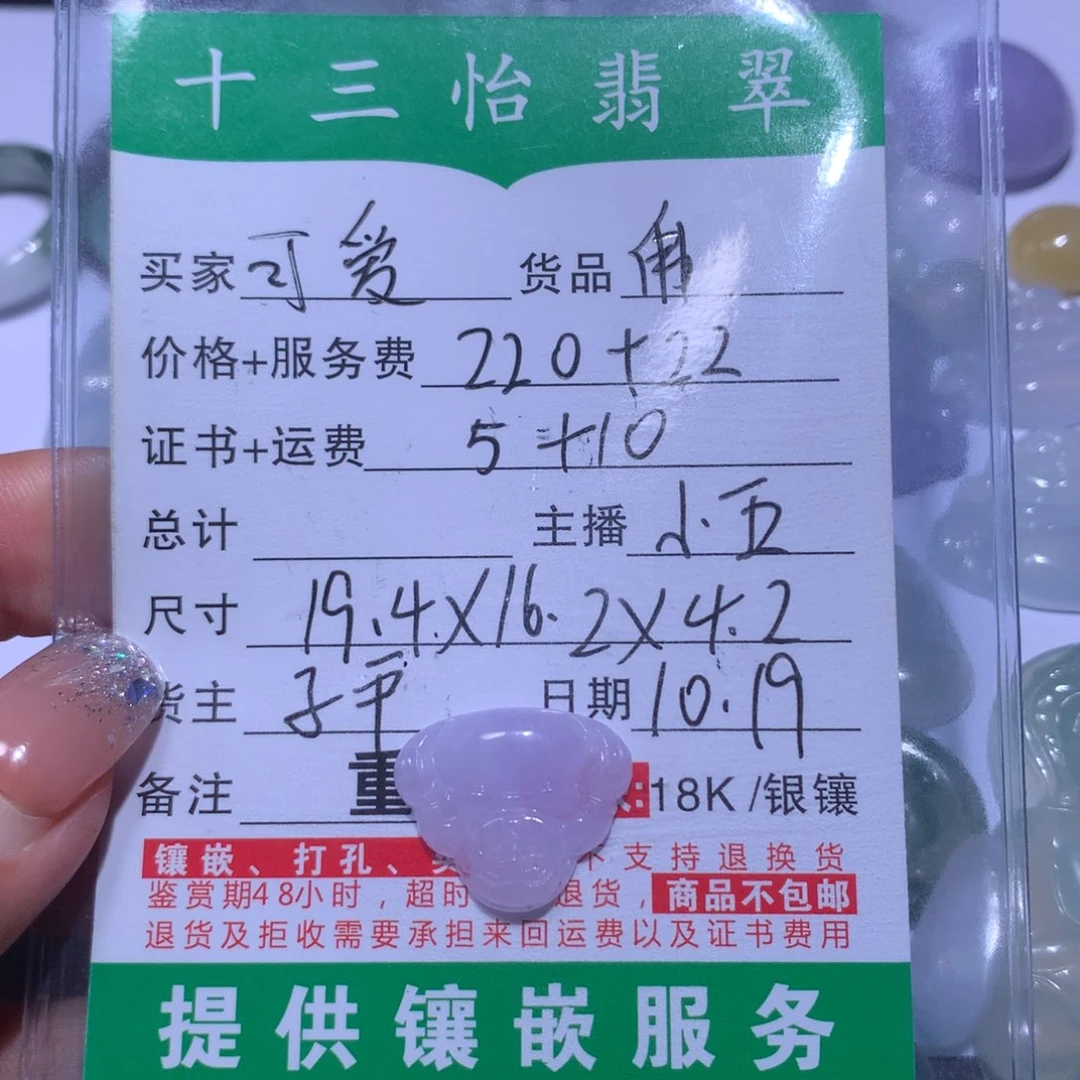 十三怡翡翠
买家 可爱 货品 佛
价格+服务费 220+22
证书+运费 5+10
总计 主播 小五
尺寸 19.4X16.2X4.2
货主 日期 10.19
备注 重 18K /银镶
镶嵌、打孔、 不支持退换货
鉴赏期48小时，超时 退货，商品不包邮
退货及拒收需要承担来回运费以及证书费用
提供镶嵌服务